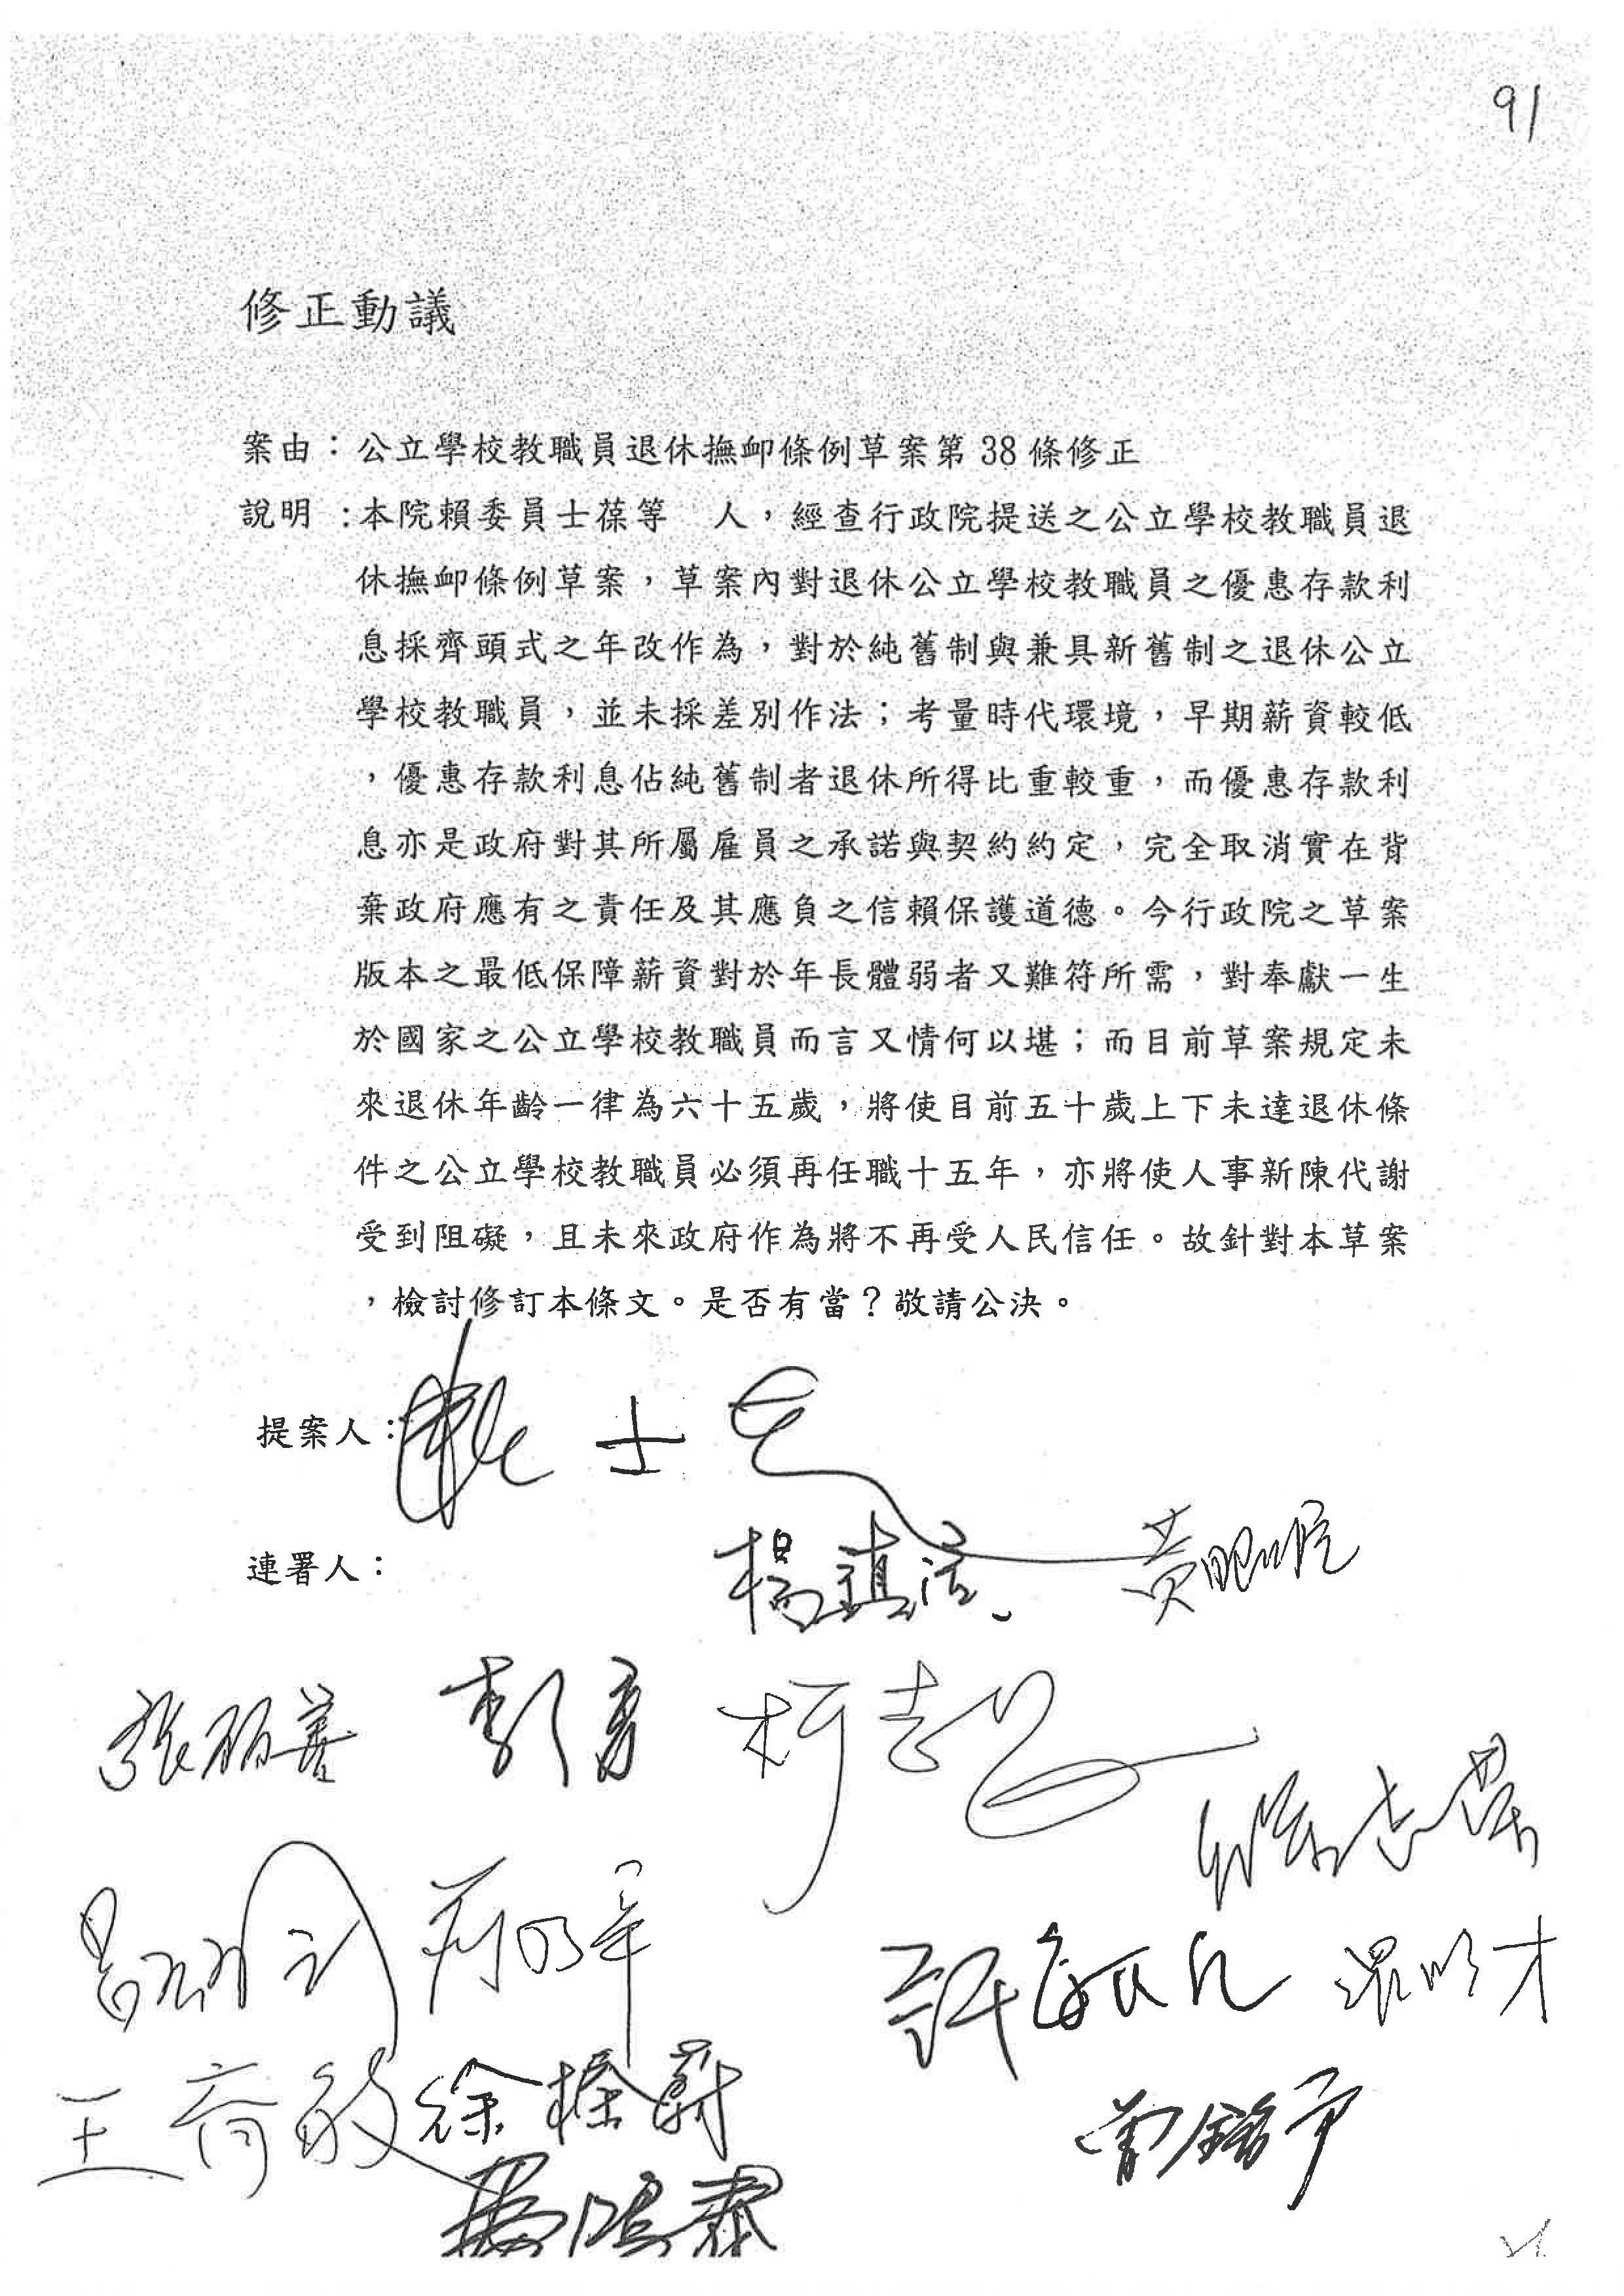 91
修正動議
案由：公立學校教職員退休撫卹條例草案第 38 條修正
說明：本院賴委員士葆等　人，經查行政院提送之公立學校教職員退
休撫卹條例草案，草案內對退休公立學校教職員之優惠存款利
息採齊頭式之年改作為，對於純舊制與兼具新舊制之退休公立
學校教職員，並未採差別作法；考量時代環境，早期薪資較低
，優惠存款利息佔純舊制者退休所得比重較重，而優惠存款利
息亦是政府對其所屬雇員之承諾與契約約定，完全取消實在背
棄政府應有之責任及其應負之信賴保護道德。今行政院之草案
版本之最低保障薪資對於年長體弱者又難符所需，對奉獻一生
於國家之公立學校教職員而言又情何以堪；而目前草案規定未
來退休年齡一律為六十五歲，將使目前五十歲上下未達退休條
件之公立學校教職員必須再任職十五年，亦將使人事新陳代謝
受到阻礙，且未來政府作為將不再受人民信任。故針對本草案
，檢討修訂本條文。是否有當？敬請公決。
提案人：
連署人：
楊鎮浯 黃昭順
張麗善
柯志恩
徐志榮
許毓仁
徐榛蔚
曾銘宗